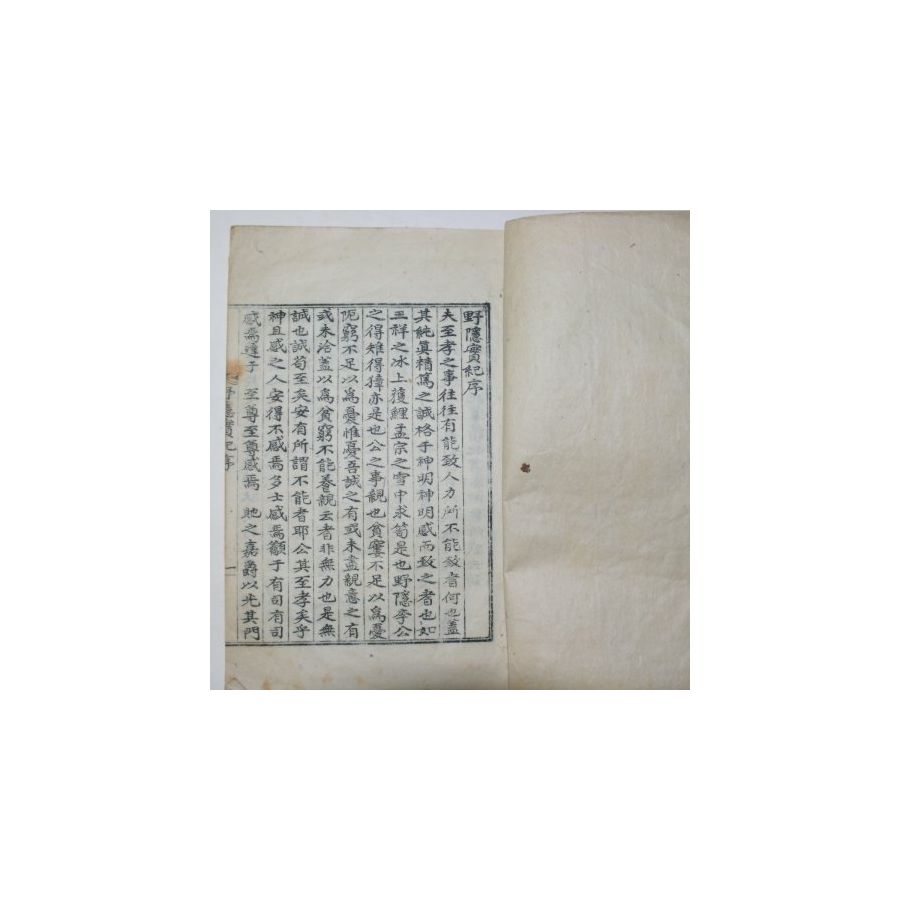 野隱實紀序
夫至孝之事往往有能致人力所不能致者何也盖
其純眞精篤之誠格于神明神明感而致之者也如
王祥之冰上獲鯉孟宗之雪中求筍是也野隱李公
之得雉得獐亦是也公之事親也貧窶不足以爲憂
阨窮不足以爲憂惟憂吾誠之有或未盡親意之有
或未洽盖以爲貧窮不能養親云者非無力也是無
誠也誠苟至矣安有所謂不能者耶公其至孝矣乎
神且感之人安得不感焉多士感焉籲于有司有司
感焉達于 至尊至尊感焉 貤之嘉爵以光其門
野隱實紀序 一